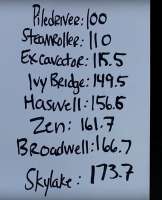 Piledriver:100
Steamroller:110
Excavator:115.5
Ivy Bridge:149.5
Haswell:156.5
Zen: 161.7
Broadwell:166.7
Skylake: 173.7